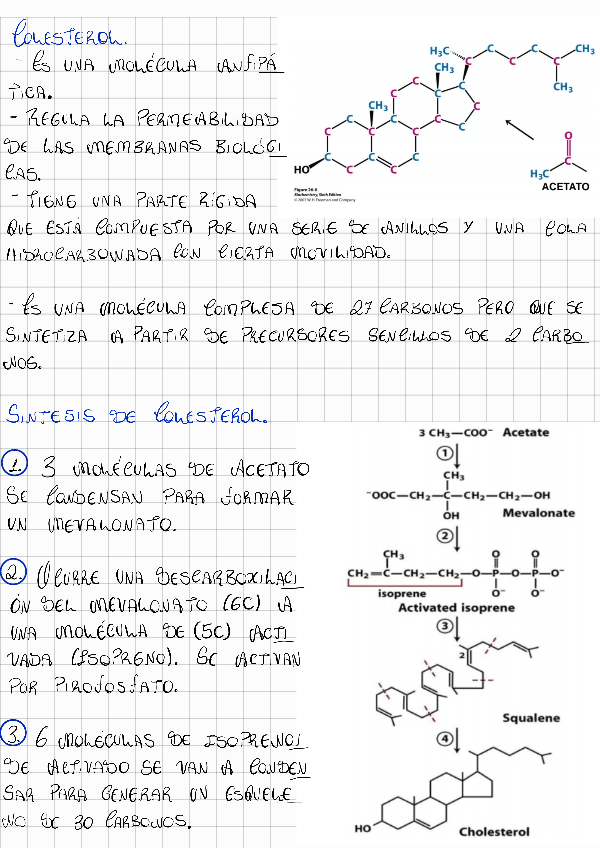 COLESTEROL.
- ES UNA MOLÉCULA ANFIPÁ
TICA.
- REGULA LA PERMEABILIDAD
DE LAS MEMBRANAS BIOLÓGI
CAS.
- TIENE UNA PARTE RÍGIDA
QUE ESTÁ COMPUESTA POR UNA SERIE DE ANILLOS Y UNA COLA
HIDROCARBONADA CON CIERTA MOVILIDAD.
H₃C
C
C
C
CH₃
CH₃
CH₃
CH₃
HO
H₃C
O
C
ACETATO
Figure 26-6
Biochemistry, Sixth Edition
© 2007 W.H. Freeman and Company
- ES UNA MOLÉCULA COMPLEJA DE 27 CARBONOS PERO QUE SE
SINTETIZA A PARTIR DE PRECURSORES SENCILLOS DE 2 CARBO
NOS.
SINTESIS DE COLESTEROL.
1. 3 MOLÉCULAS DE ACETATO
SE CONDENSAN PARA FORMAR
UN MEVALONATO.
2. OCURRE UNA DESCARBOXILACI
ÓN DEL MEVALONATO (6C) A
UNA MOLÉCULA DE (5C) ACTI
VADA (ISOPRENO). SE ACTIVAN
POR PIROFOSFATO.
3. 6 MOLÉCULAS DE ISOPRENOI
DE ACTIVADO SE VAN A CONDEN
SAR PARA GENERAR UN ESQUELE
NO DE 30 CARBONOS.
3 CH₃—COO⁻ Acetate
1
CH₃
⁻OOC—CH₂—C—CH₂—CH₂—OH
OH
Mevalonate
2
CH₃ O O
CH₂=C—CH₂—CH₂—O—P—O—P—O⁻
O⁻ O⁻
isoprene
Activated isoprene
3
2
Squalene
4
HO
Cholesterol